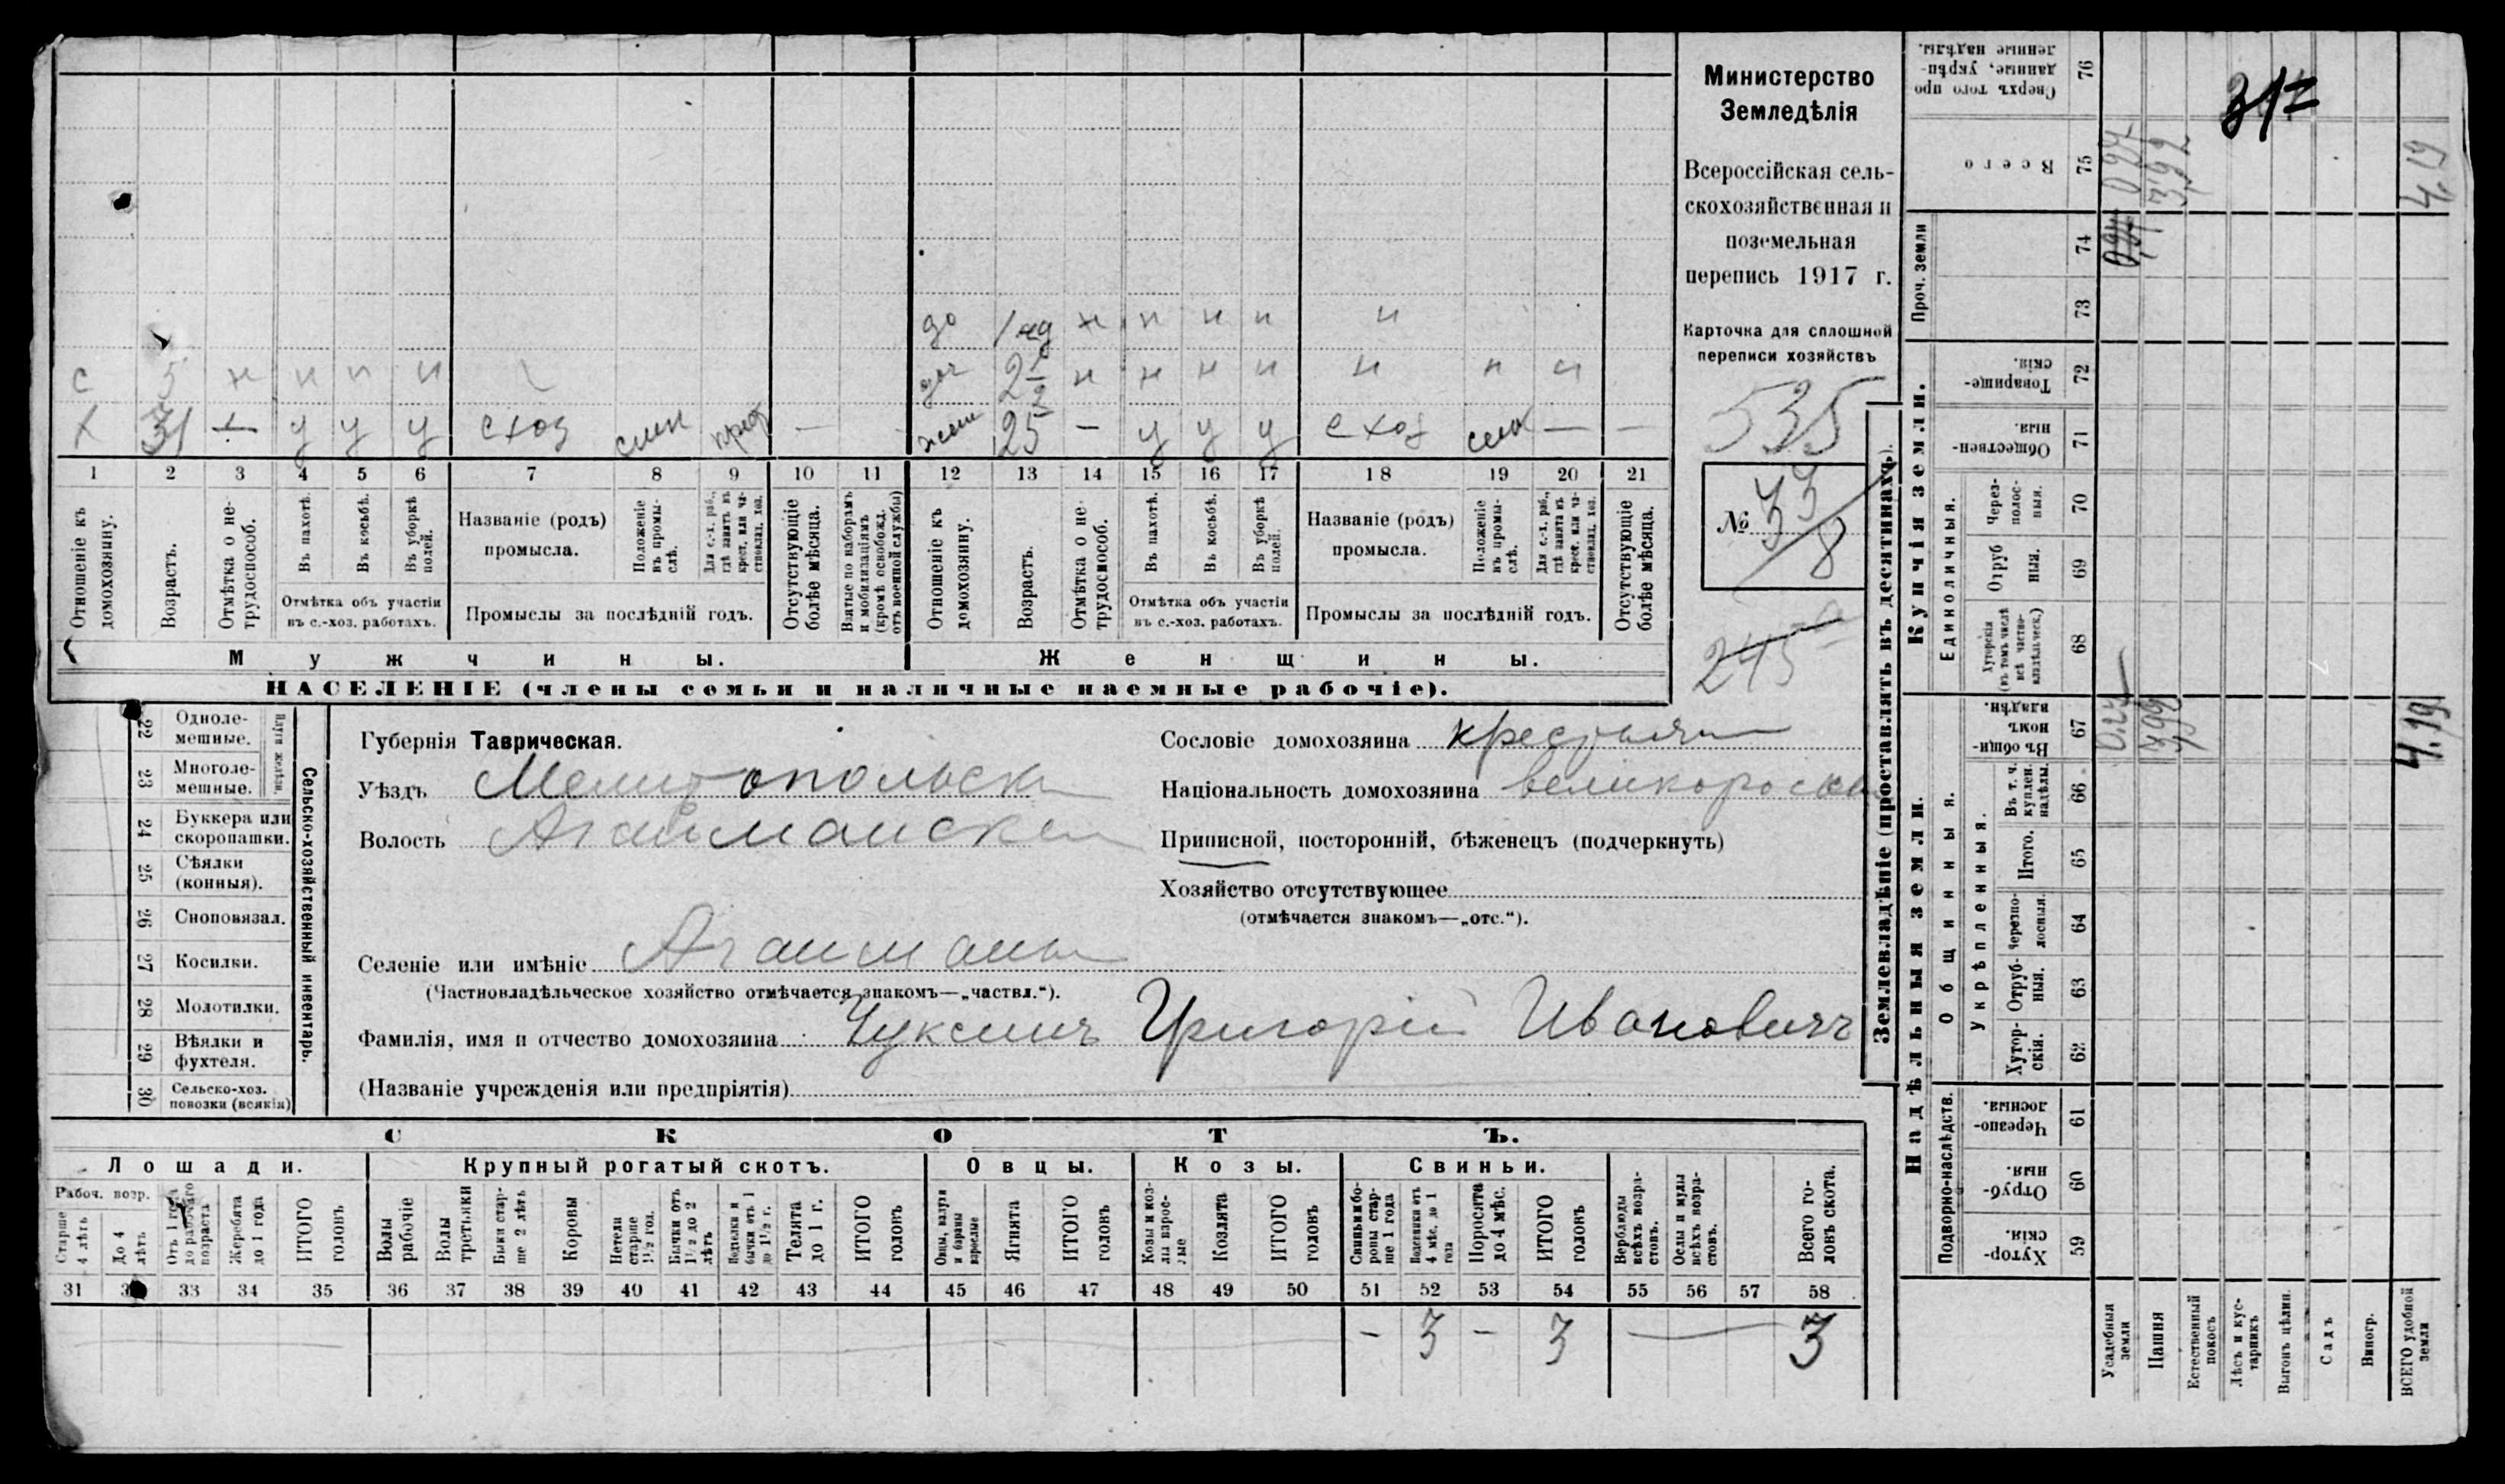 х 31 — у у у схоз — —
с 5 н н н н
жена 25 — у у у схоз — —
доч 2½ н н н н н н н
до н н н н н
1 2 3 4 5 6 7 8 9 10 11 12 13 14 15 16 17 18 19 20 21
Отношеніе къ домохозяину.
Возрастъ.
Отмѣтка о не-трудоспособ.
Въ пахотѣ.
Въ косьбѣ.
Въ уборкѣ полей.
Отмѣтка объ участіи
въ с.-хоз. работахъ.
Названіе (родъ)
промысла.
Положеніе въ промы-слѣ.
Для с.-х. раб., гдѣ занятъ въ крест. или ча-стновлад. хоз.
Промыслы за послѣдній годъ.
Отсутствующіе болѣе мѣсяца.
Взятые по наборамъ и мобилизаціямъ (кромѣ освобожд. отъ военной службы)
Отношеніе къ домохозяину.
Возрастъ.
Отмѣтка о не-трудоспособ.
Въ пахотѣ.
Въ косьбѣ.
Въ уборкѣ полей.
Отмѣтка объ участіи
въ с.-хоз. работахъ.
Названіе (родъ)
промысла.
Положеніе въ промы-слѣ.
Для с.-х. раб., гдѣ занята въ крест. или ча-стновлад. хоз.
Промыслы за послѣдній годъ.
Отсутствующіе болѣе мѣсяца.
Мужчины. Женщины.
НАСЕЛЕНІЕ (члены семьи и наличные наемные рабочіе).
Министерство
Земледѣлія
Всероссійская сель-
скохозяйственная и
поземельная
перепись 1917 г.
Карточка для сплошной
переписи хозяйствъ
535
№ 33/8
245
Сельско-хозяйственный инвентарь.
Плуги желѣзн.
22 Одноле-
мешные.
23 Многоле-
мешные.
24 Буккера или
скоропашки.
25 Сѣялки
(конныя).
26 Сноповязал.
27 Косилки.
28 Молотилки.
29 Вѣялки и
фухтеля.
30 Сельско-хоз.
повозки (всякія)
Губернія Таврическая.
Уѣздъ Мелитопольск
Волость Агайманская
Селеніе или имѣніе Агайманы
(Частновладѣльческое хозяйство отмѣчается знакомъ—„частвл.“).
Сословіе домохозяина крестьянин
Національность домохозяина великоросс
Приписной, посторонній, бѣженецъ (подчеркнуть)
Хозяйство отсутствующее
(отмѣчается знакомъ—„отс.“).
Фамилія, имя и отчество домохозяина Чуксинъ Григорій Ивановичъ
(Названіе учрежденія или предпріятія)
СКОТЪ.
Лошади. Крупный рогатый скотъ. Овцы. Козы. Свиньи.
Рабоч. возр.
Старше 4 лѣтъ
До 4 лѣтъ
Отъ 1 года до рабочаго возраста
Жеребята до 1 года
ИТОГО головъ
Волы рабочіе
Волы третьяки
Быки стар-ше 2 лѣтъ
Коровы
Нетели старше 1½ год.
Бычки отъ 1½ до 2 лѣтъ
Подтелки и бычки отъ 1 до 1½ г.
Телята до 1 г.
ИТОГО головъ
Овцы, валухи и бараны взрослые
Ягнята
ИТОГО головъ
Козы и коз-лы взрос-лые
Козлята
ИТОГО головъ
Свиньи и бо-ровы стар-ше 1 года
Подсвинки отъ 4 мѣс. до 1 года
Поросята до 4 мѣс.
ИТОГО головъ
Верблюды всѣхъ возра-стовъ.
Ослы и мулы всѣхъ возра-стовъ.
Всего го-ловъ скота.
31 33 34 35 36 37 38 39 40 41 42 43 44 45 46 47 48 49 50 51 52 53 54 55 56 57 58
— 3 — 3 — 3
Землевладѣніе (проставлять въ десятинахъ).
Сверхъ того про данные, укрѣп-ленные надѣлы. 76
31=
Всего 75 3,92 4,19
Проч. земли
74
73
Купчія земли.
Товарище-скія. 72
Обществен-ныя. 71
Единоличныя.
Через-полос-ныя. 70
Отруб ныя. 69
Хуторскія (въ томъ числѣ всѣ частно-владѣльческ.) 68
Надѣльныя земли.
Общинныя.
Въ общин-номъ владѣн. 67 3,99 4,19
Укрѣпленныя.
Въ т. ч. куплен. надѣлы. 66
Итого. 65
Черезпо-лосныя. 64
Отруб-ныя. 63
Хутор-скія. 62
Подворно-наслѣдств.
Черезпо-лосныя. 61
Отруб-ныя. 60
Хутор-скія. 59
Усадебныя земли
Пашня
Естественный покосъ
Лѣсъ и кус-тарникъ
Выгонъ цѣлин.
Садъ
Виногр.
ВСЕГО удобной земли